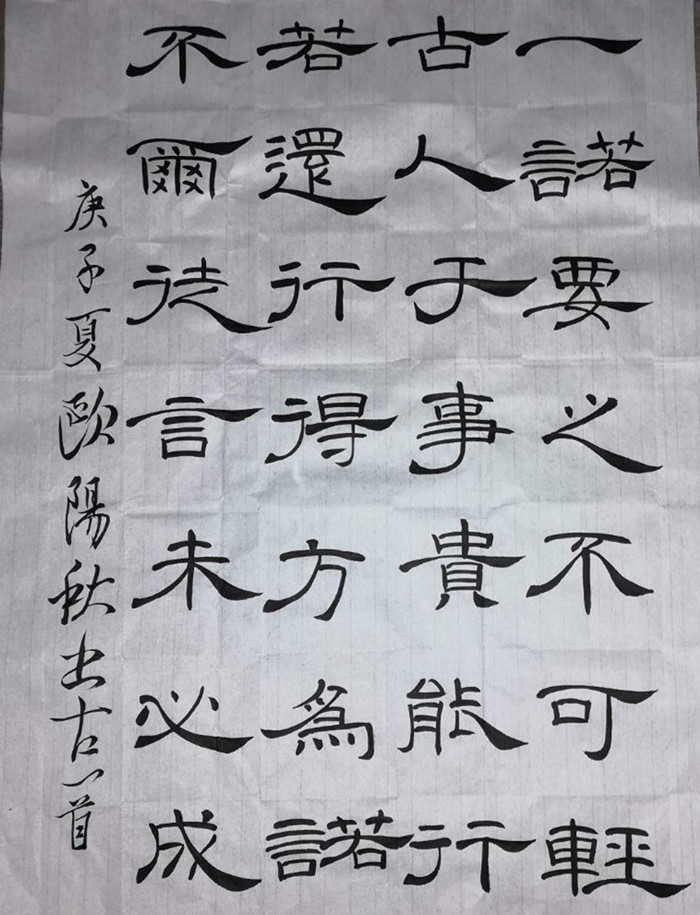 一諾要之不可輕
古人于事貴能行
若還行得方為諾
不爾徒言未必成
庚子夏歐陽秋書古一首